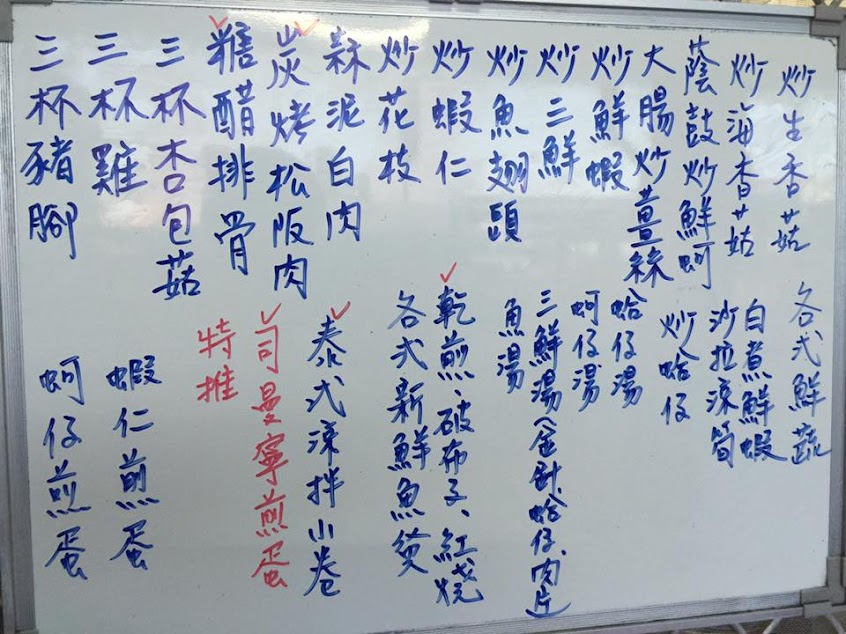 炒生香菇
炒海香菇
蔭鼓炒鮮蚵
大腸炒薑絲
炒鮮蝦
炒三鮮
炒魚翅頭
炒蝦仁
炒花枝
蒜泥白肉
炭烤松阪肉
糖醋排骨
三杯杏包菇
三杯雞
三杯豬腳
各式鮮蔬
白煮鮮蝦
沙拉涼筍
炒蛤仔
蛤仔湯
蚵仔湯
三鮮湯(金針、蛤仔、肉片)
魚湯
乾煎、破布子、紅燒
各式新鮮魚煲
泰式涼拌小卷
司曼寧煎蛋
特推
蝦仁煎蛋
蚵仔煎蛋